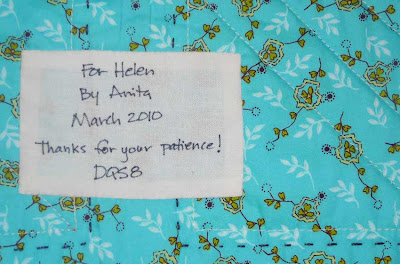 For Helen
By Anita
March 2010
Thanks for your patience!
DQS8